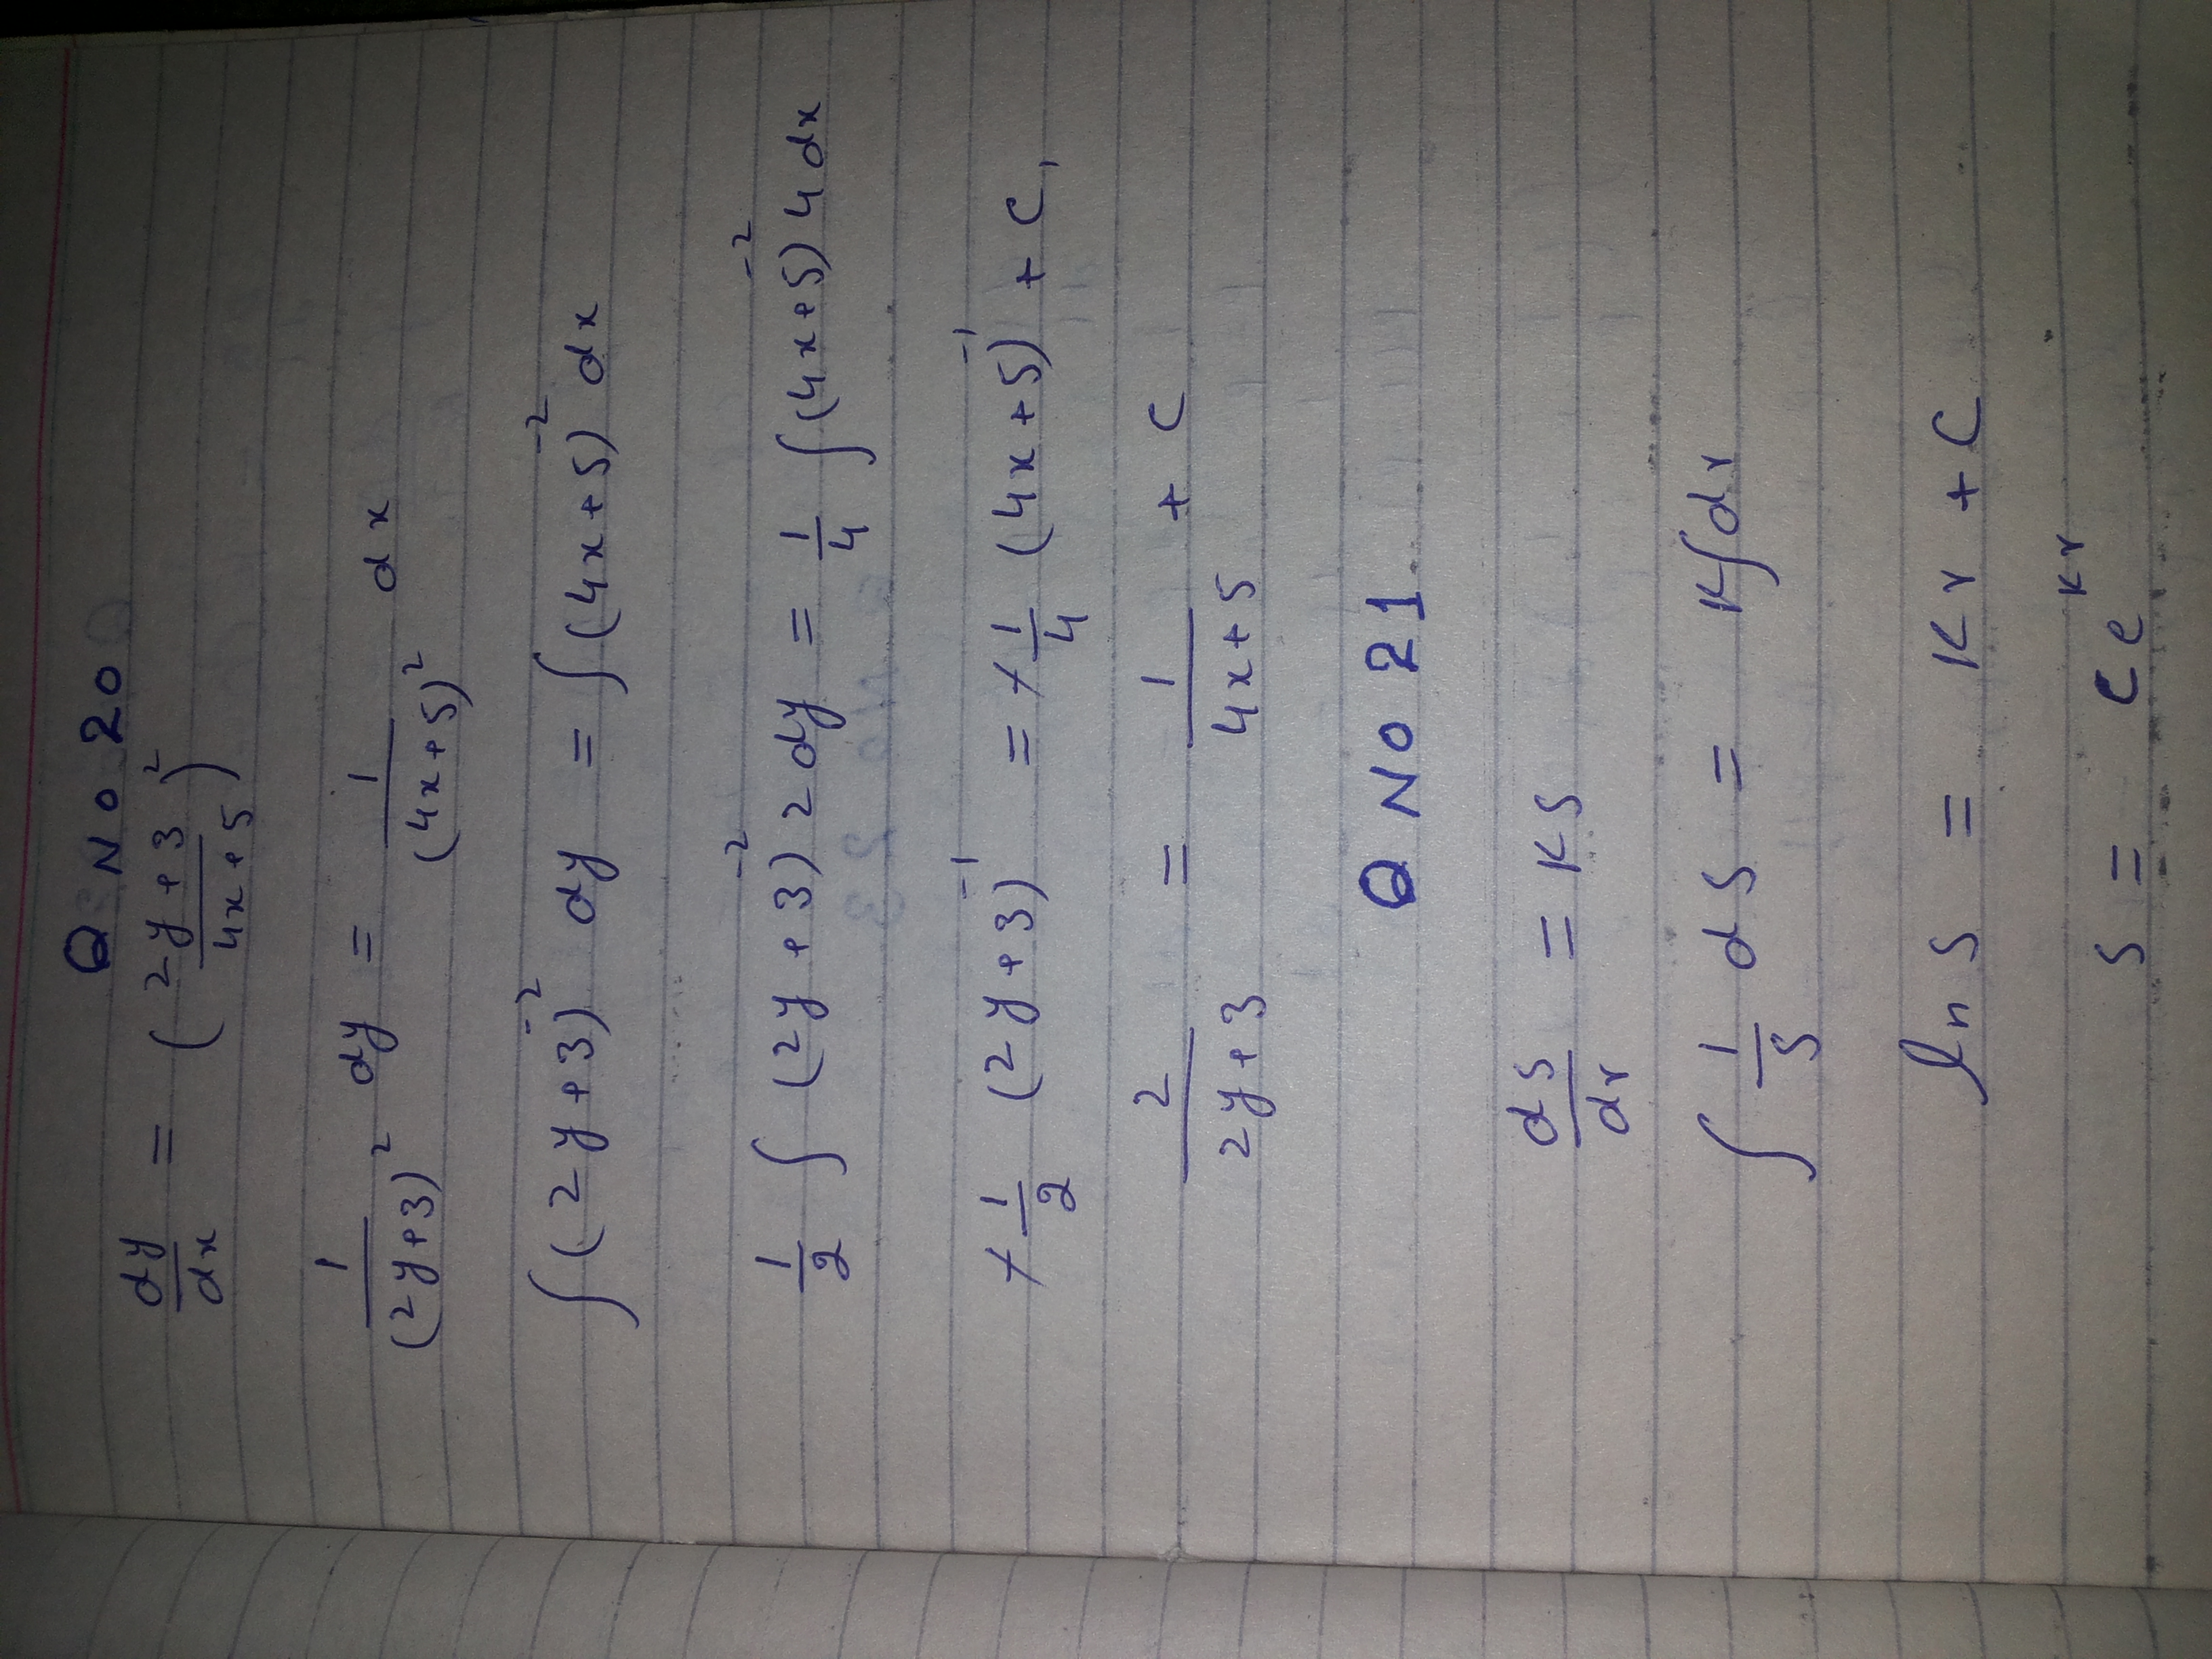 Q No 20
dy/dx = (2y+3/4x+5)²
1/(2y+3)² dy = 1/(4x+5)² dx
∫(2y+3)⁻² dy = ∫(4x+5)⁻² dx
1/2 ∫ (2y+3)⁻² 2dy = 1/4 ∫(4x+5)⁻² 4dx
-1/2 (2y+3)⁻¹ = -1/4 (4x+5)⁻¹ + C₁
2/2y+3 = 1/4x+5 + C
Q No 21
ds/dr = KS
∫ 1/S dS = K∫dr
ln S = Kr + C
S = Ce^Kr